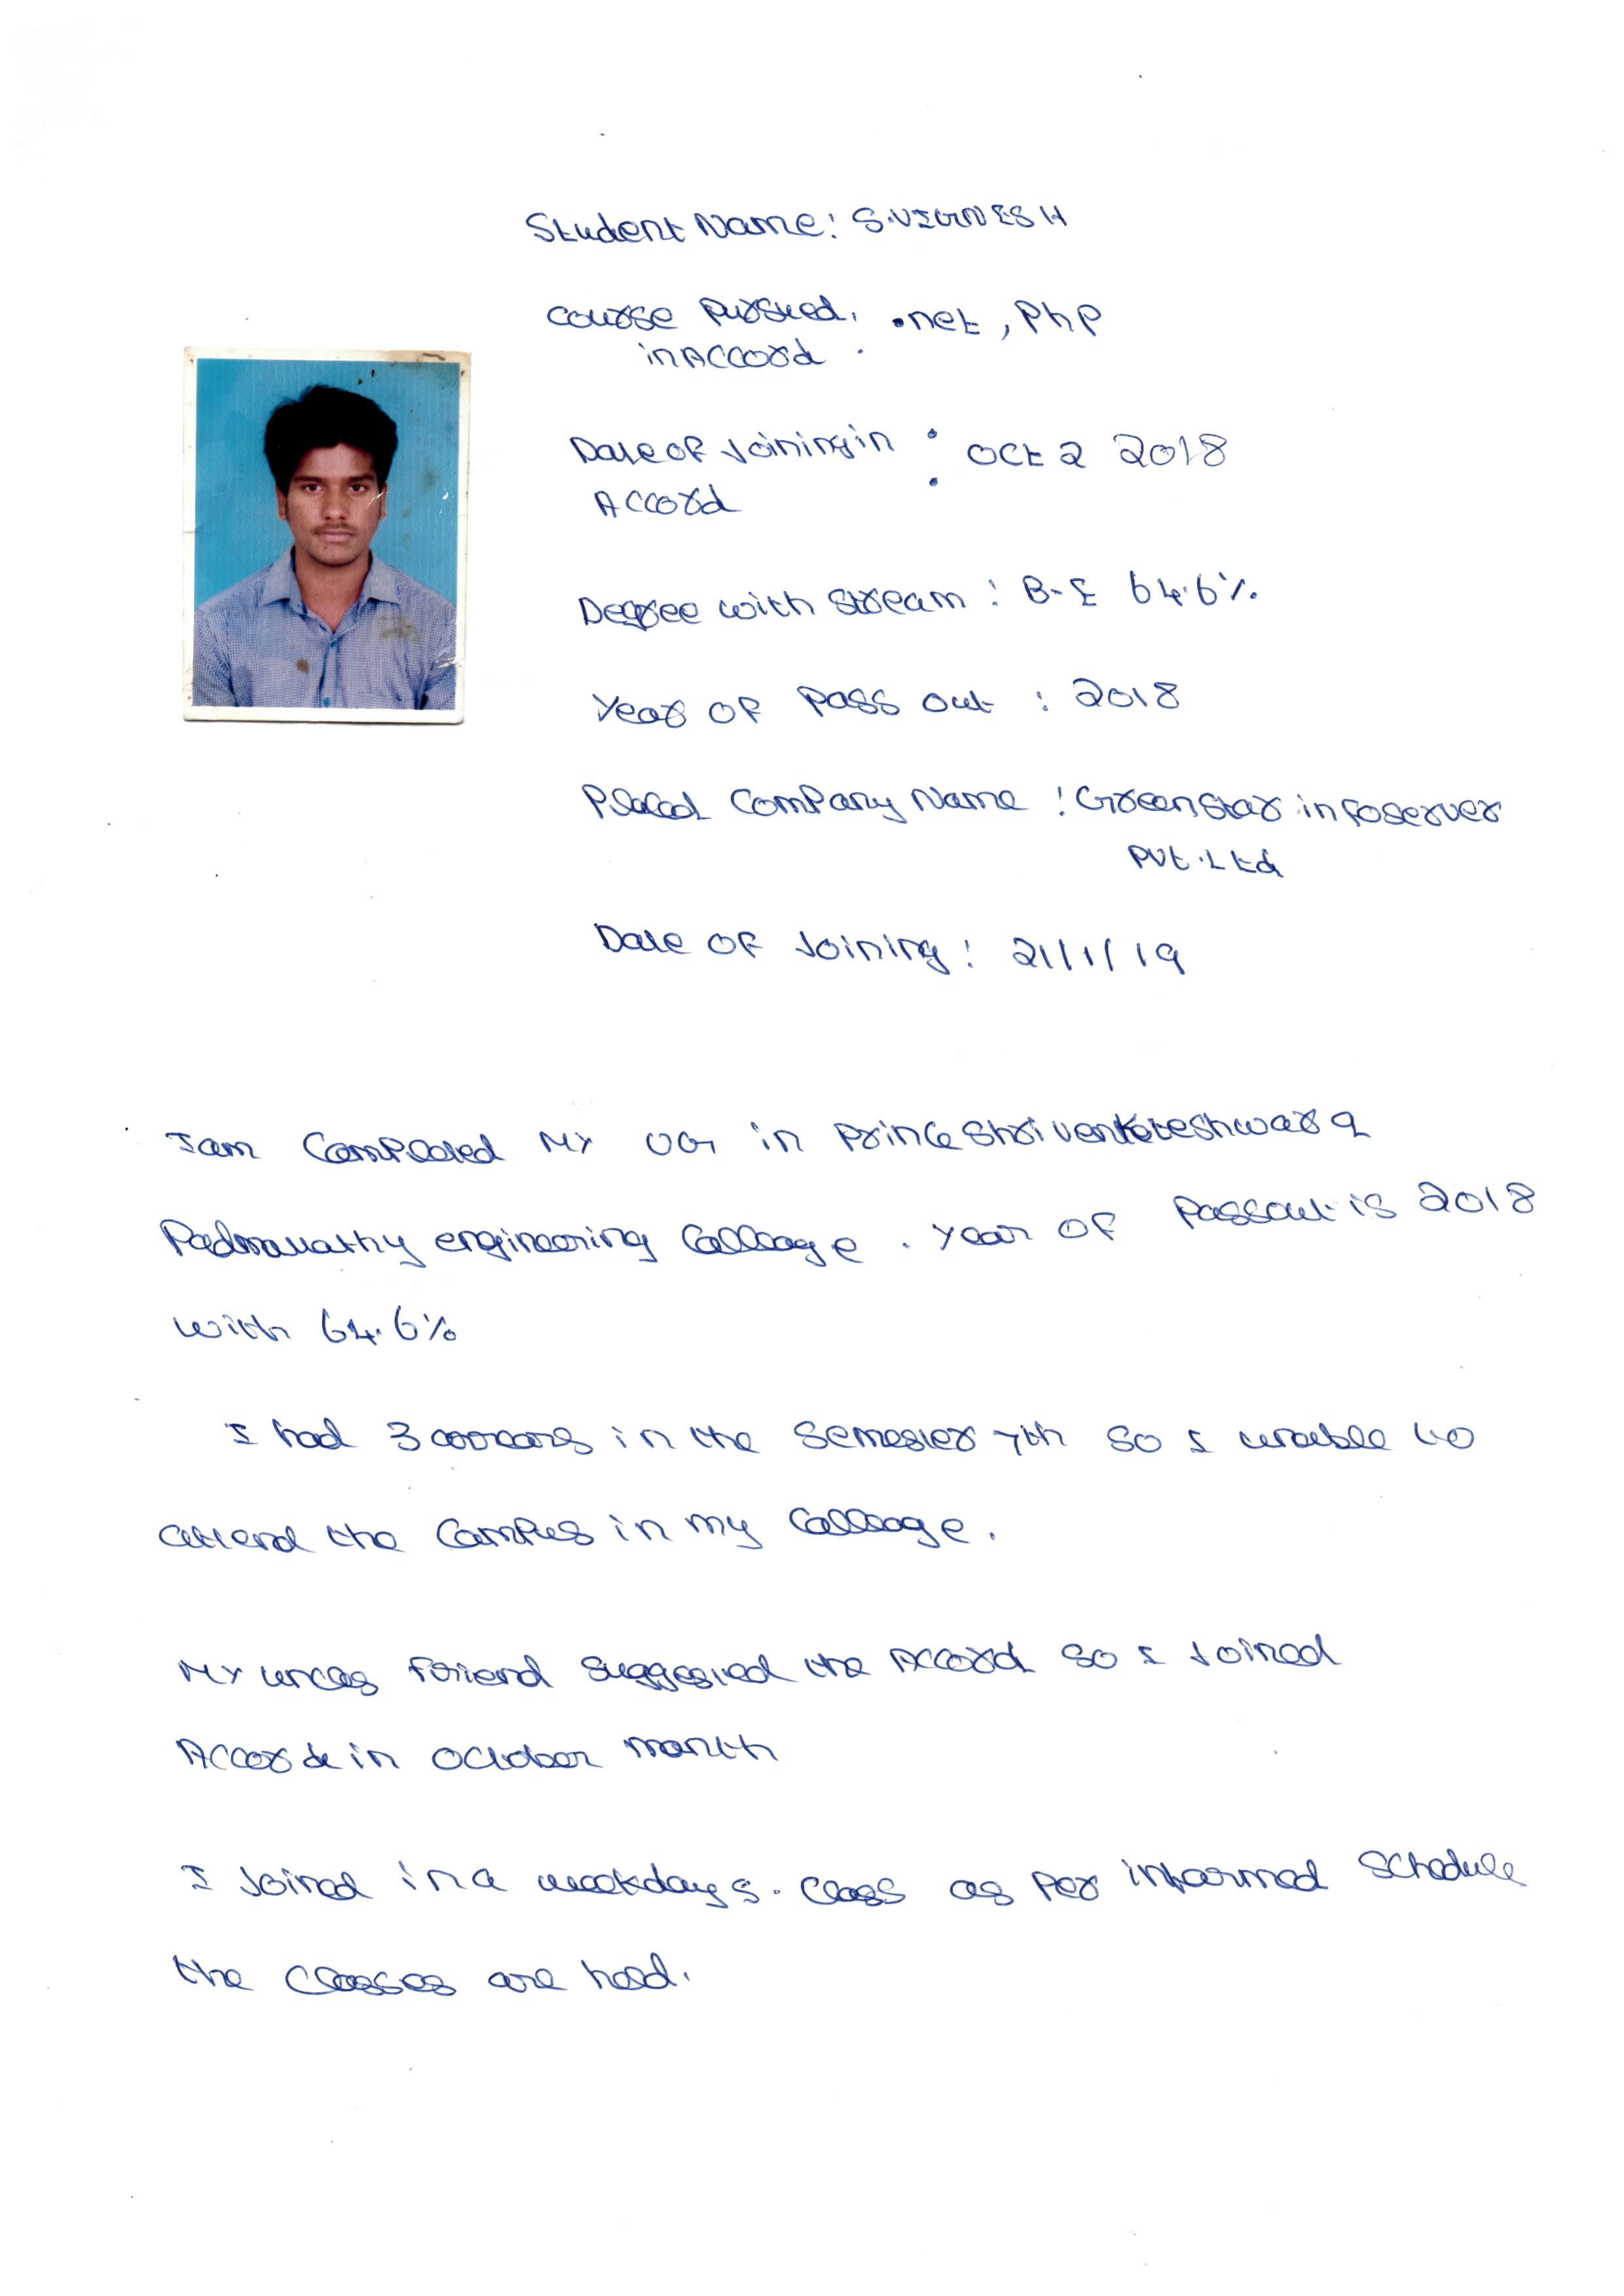 Student Name: S.VIGNESH
Course pursued : .net, Php
in Accord
Date of Joining in : Oct 2 2018
Accord
Degree with stream : B.E 64.6%
Year of pass out : 2018
Placed Company Name : Greenstar infoserver
Pvt.Ltd
Date of Joining : 21/1/19
I am Completed My UG in Prince Shri venkateshwara
Padmavathy engineering Colleage. Year of Passout is 2018
with 64.6%
I had 3 arrears in the Semester 7th so I unable to
attend the Campus in my Colleage.
My friend Suggested the Accord so I Joined
Accord in October month
I Joined in a weekdays. Class as Per informed Schedule
the Classes are held.